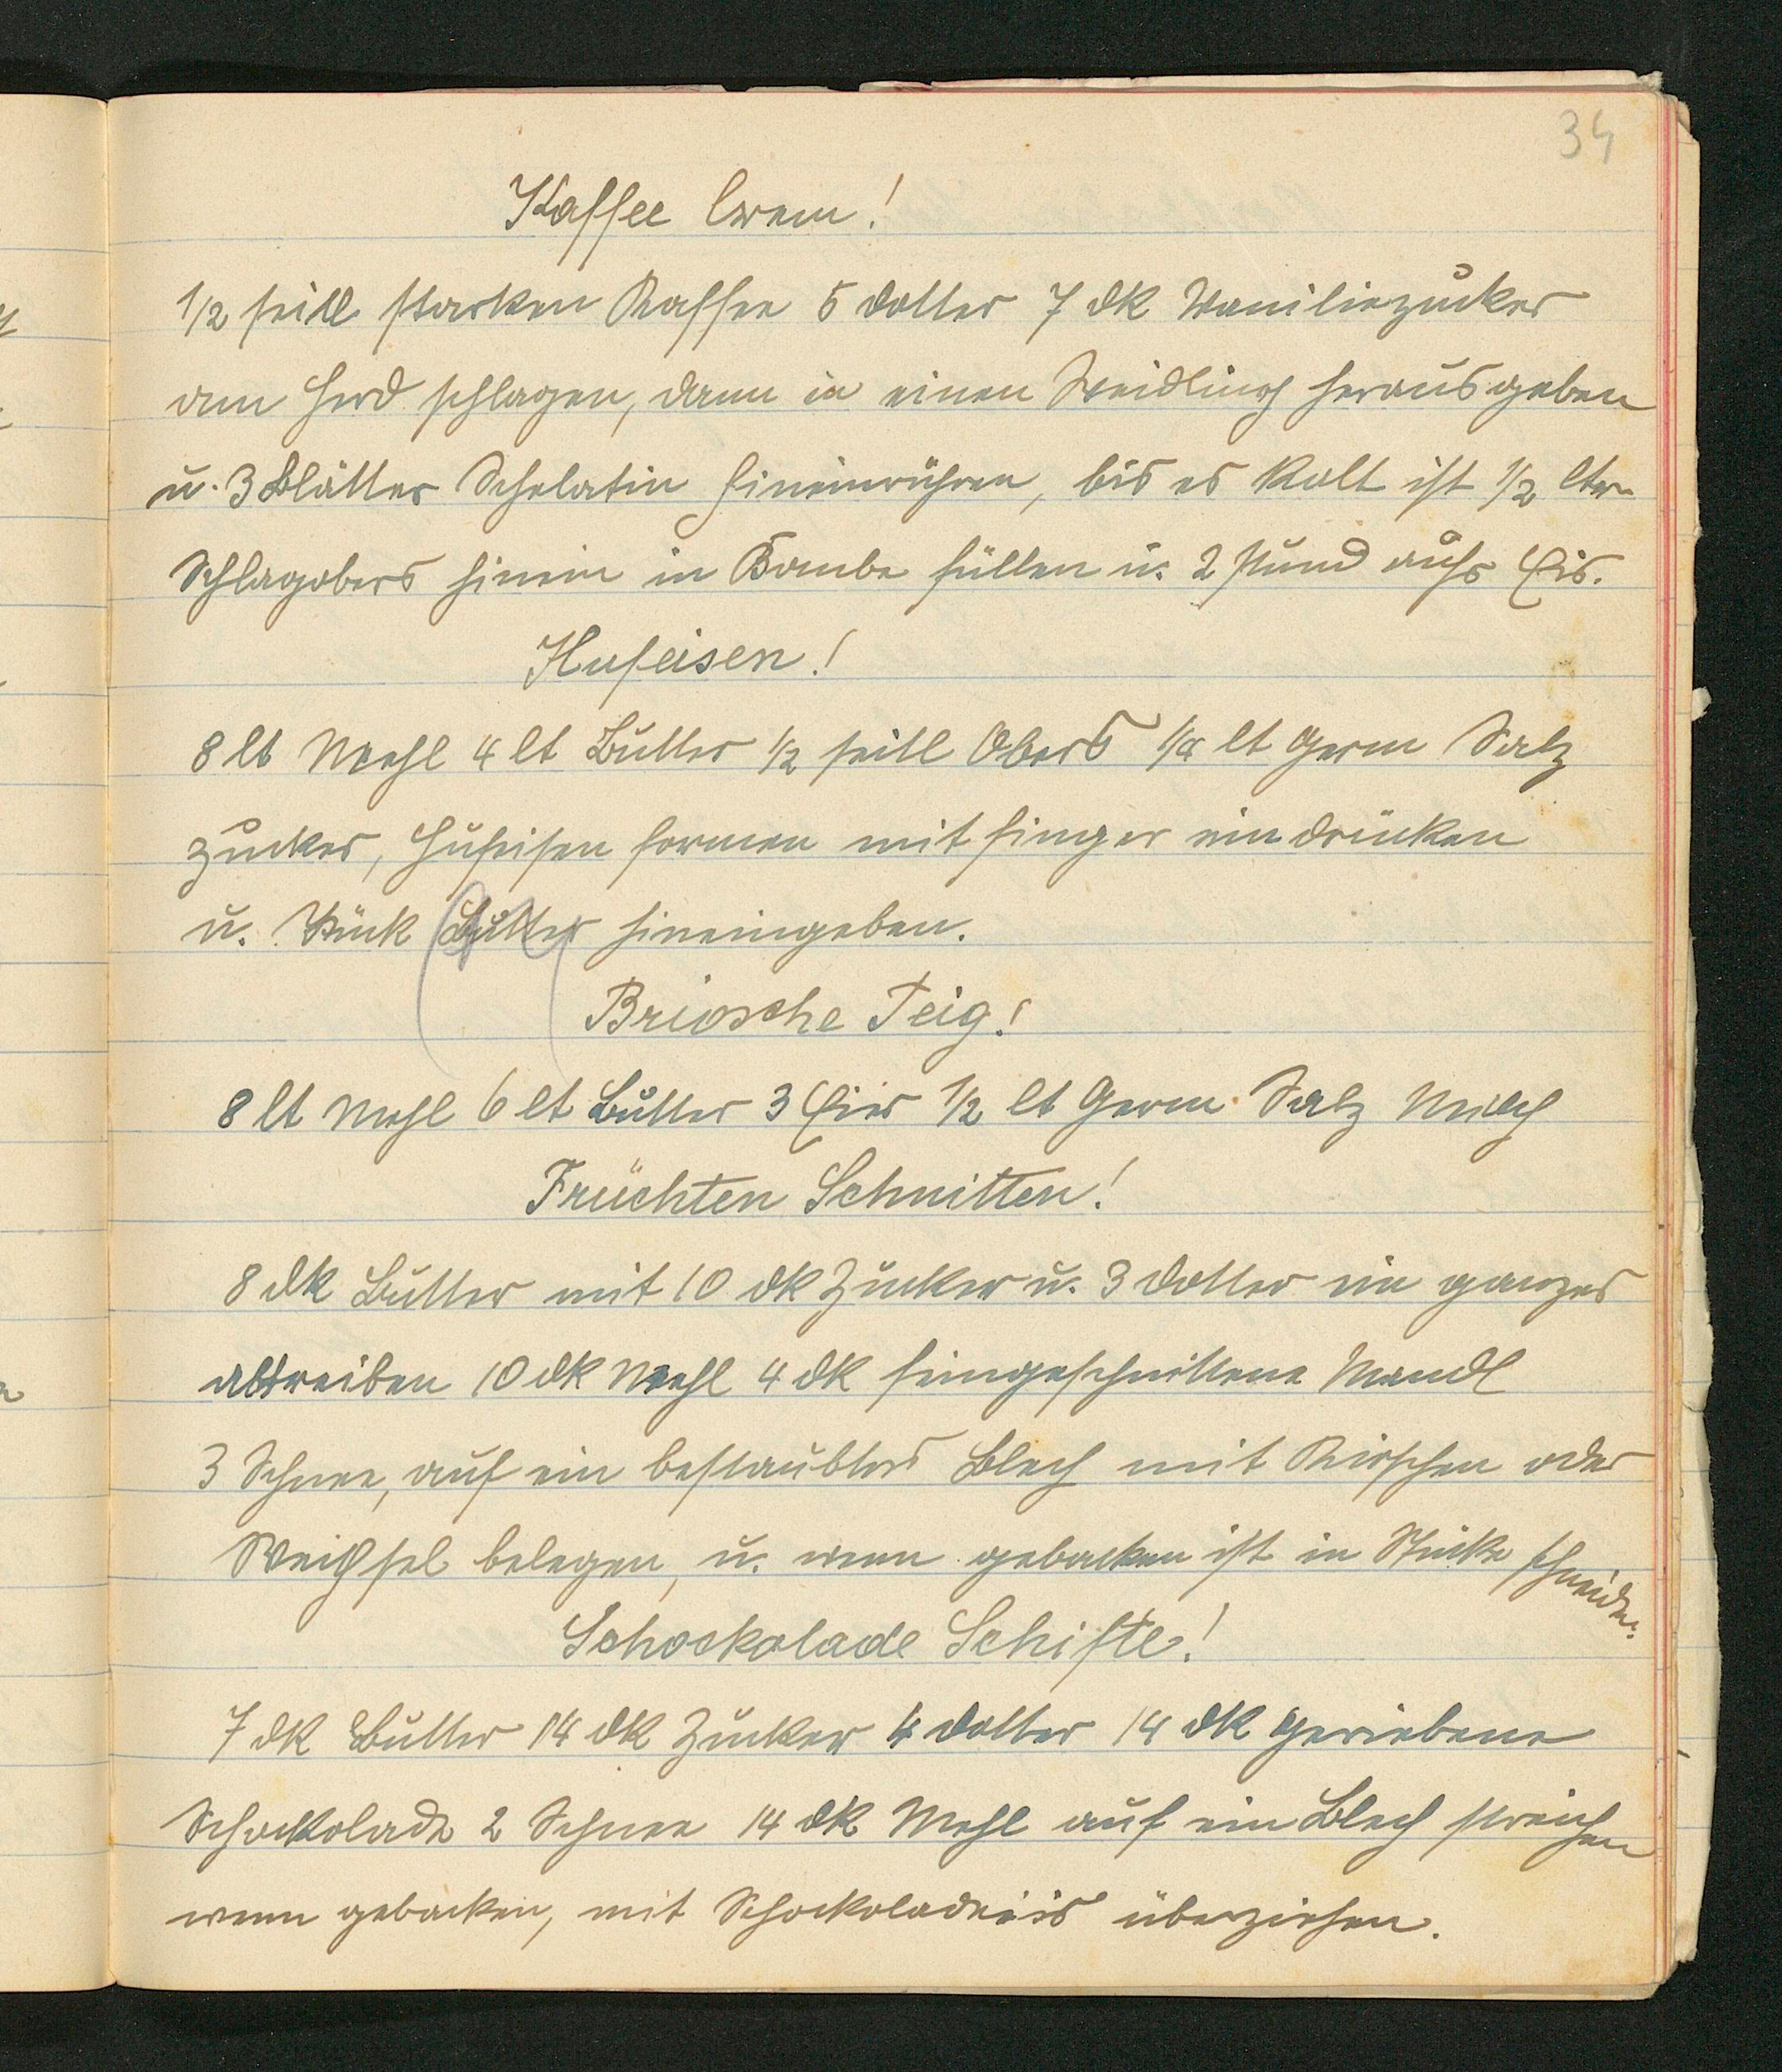 34
Kaffee Crem!
1/2 seitl starken Kaffee 5 dotter 7 dk Vaniliezucker
am Herd schlagen, dann in einen Weidling herausgeben
u. 3 Blätter Schelatin hineinrühren, bis es kalt ist 1/2 ltr
Schlagobers hinein in Bombe füllen u. 2 stund aufs Eis.
Hufeisen!
8 lt Mehl 4 lt Butter 1/2 seitl Obers 1/4 lt Germ Salz
Zucker, Hufeisen formen mit finger eindrücken
u. Stück Butter hineingeben.
Briosche Teig!
8 lt Mehl 6 lt Butter 3 Eier 1/2 lt Germ Salz Milch
Früchten Schnitten!
8 dk Butter mit 10 dk Zucker u. 3 dotter ein ganzes
abtreiben 10 dk Mehl 4 dk feingeschnittene Mandl
3 Schnee, auf ein bestaubtes Blech mit Kirschen oder
Weichsel belegen, u. wenn gebacken ist in Stücke schneiden.
Schockolade Schifte!
7 dk Butter 14 dk Zucker 4 dotter 14 dk geriebene
Schockolade 2 Schnee 14 dk Mehl auf ein Blech streichen
wenn gebacken, mit Schockoladeeis überziehen.